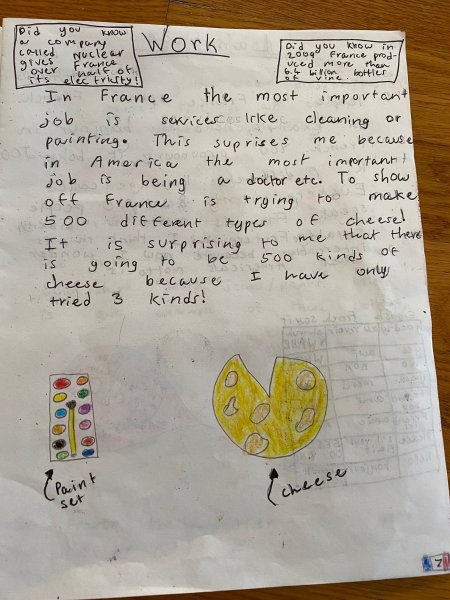 Did you know
a company
called Nuclear
gives France
over half of
its electristy!
Work
Did you know in
2009 France prod-
uced more than
6.4 billion bottles
of vine.
In France the most important
job is services like cleaning or
painting. This suprises me because
in America the most important
job is being a doctor etc. To show
off France is trying to make
500 different types of cheese!
It is surprising to me that there
is going to be 500 kinds of
cheese because I have only
tried 3 kinds!
Paint
set
cheese